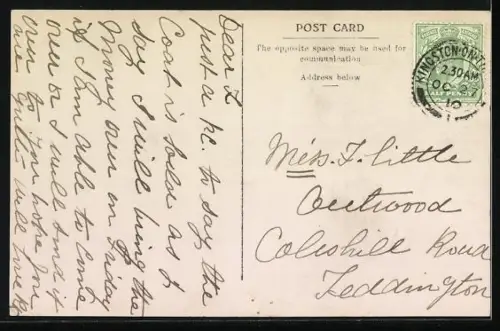 Dear F
just a P.C. to say the
Coat is sold so I
say I will bring the
Money over on Friday
if I am able to come
over or I will send it
over to you hope you
are quite well love to
POST CARD
The opposite space may be used for
communication
Address below
KINGSTON-ON-TH
2.30AM
OC
10
HALF PENNY
Miss F. Little
Coleshill Road
Teddington